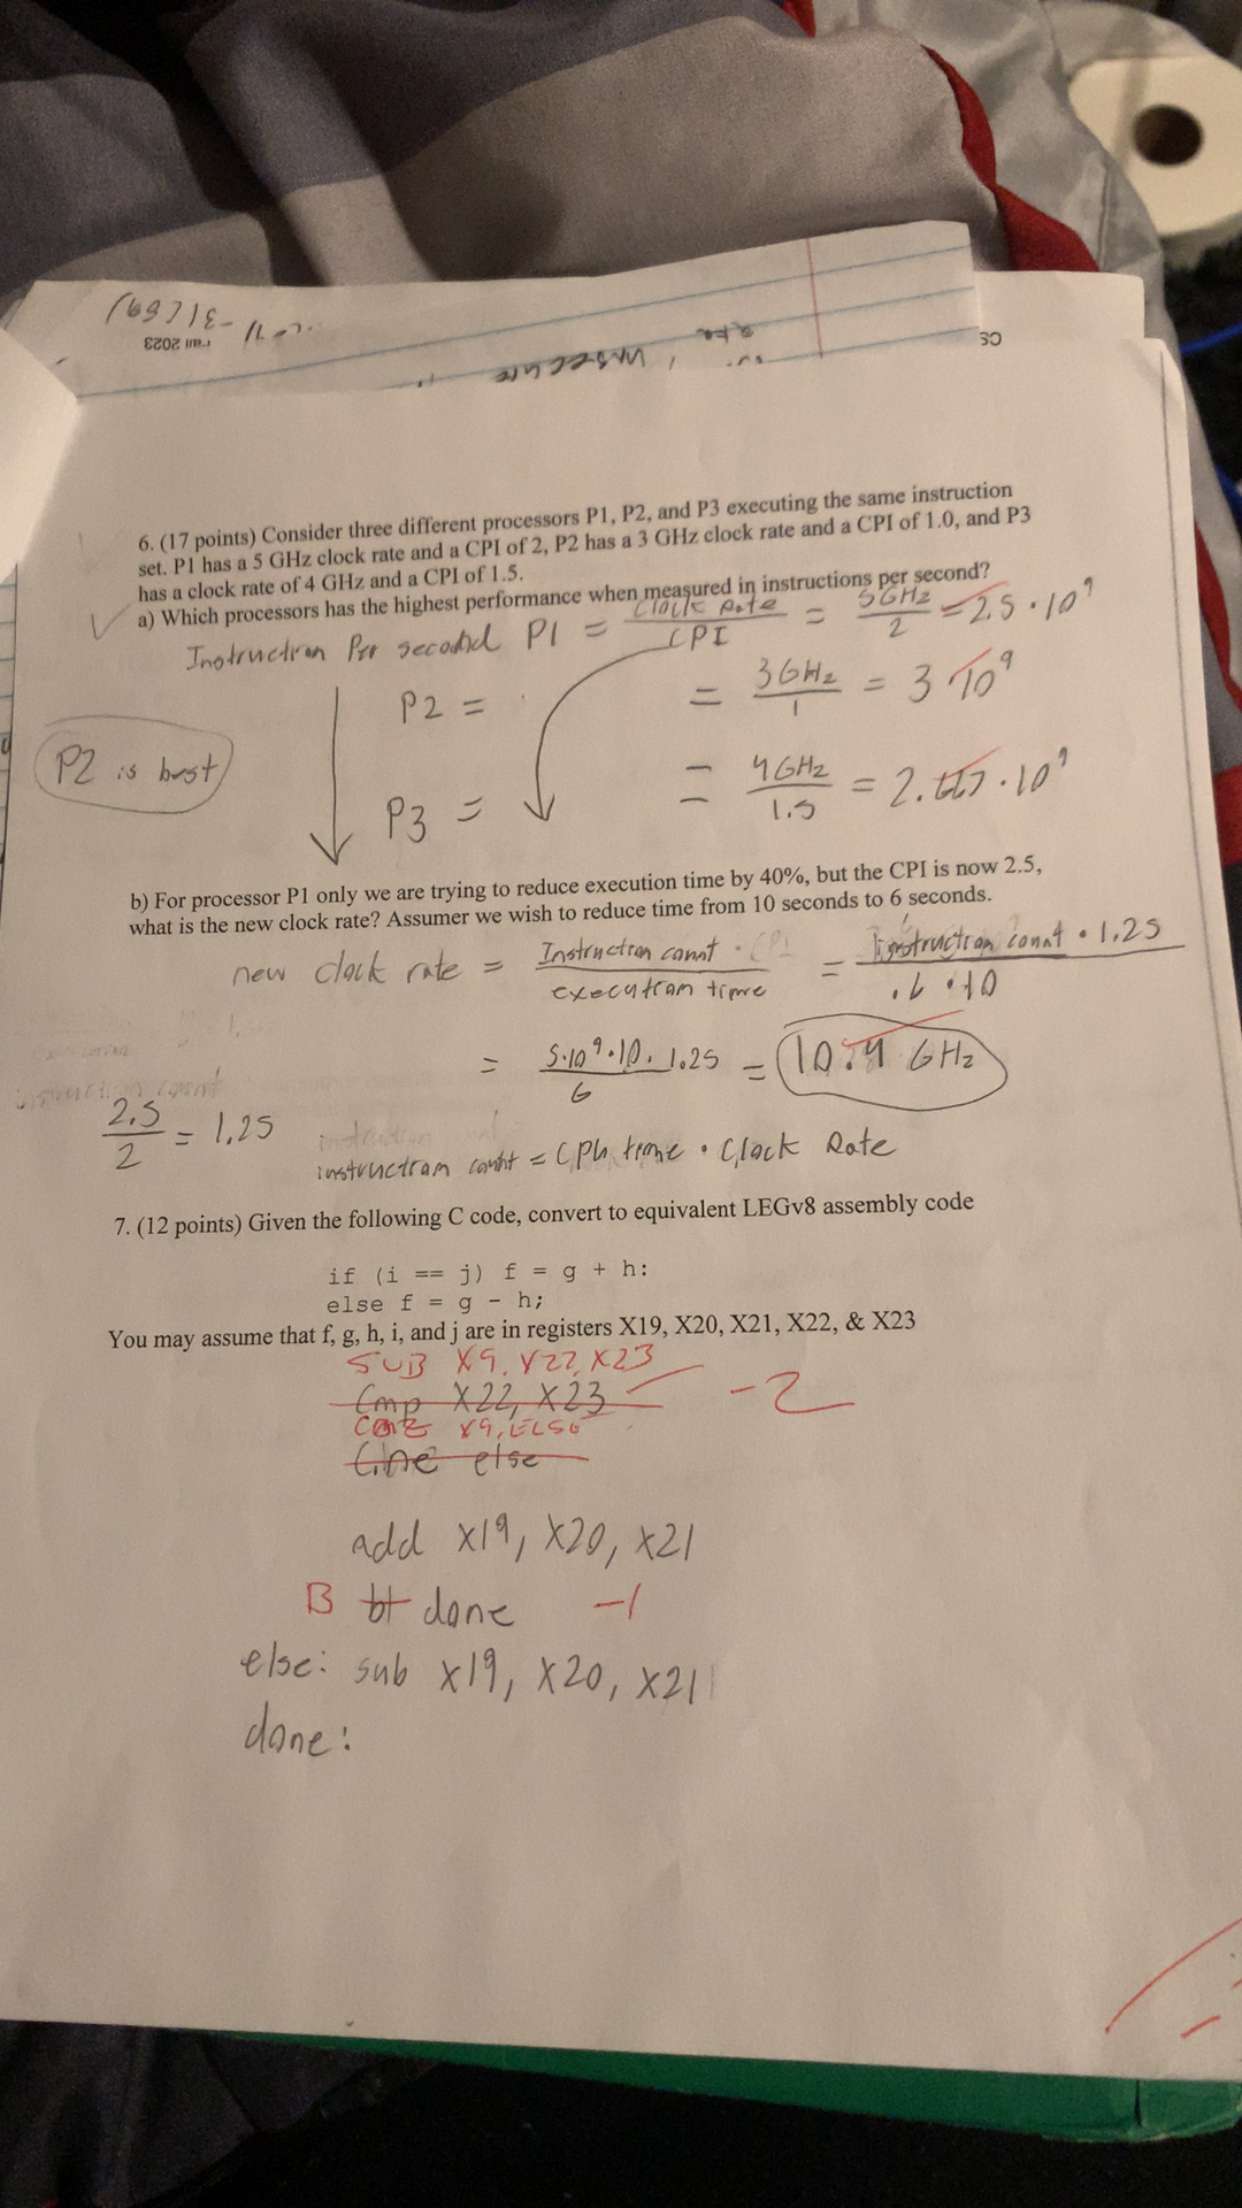 Fall 2023
CS
insecure
6. (17 points) Consider three different processors P1, P2, and P3 executing the same instruction
set. P1 has a 5 GHz clock rate and a CPI of 2, P2 has a 3 GHz clock rate and a CPI of 1.0, and P3
has a clock rate of 4 GHz and a CPI of 1.5.
a) Which processors has the highest performance when measured in instructions per second?
Instruction Per second P1 = Clock Rate / CPI = 5GHz / 2 = 2.5 · 10^9
P2 = = 3GHz / 1 = 3 · 10^9
P2 is best
P3 = = 4GHz / 1.5 = 2.667 · 10^9
b) For processor P1 only we are trying to reduce execution time by 40%, but the CPI is now 2.5,
what is the new clock rate? Assumer we wish to reduce time from 10 seconds to 6 seconds.
new clock rate = Instruction count · CPI / execution time = Instruction count · 1.25 / .6 · 10
= 5·10^9·10·1.25 / 6 = 10.4 GHz
2.5 / 2 = 1.25
instruction count = CPU time · Clock Rate
7. (12 points) Given the following C code, convert to equivalent LEGv8 assembly code
if (i == j) f = g + h:
else f = g - h;
You may assume that f, g, h, i, and j are in registers X19, X20, X21, X22, & X23
SUB X9, X22, X23
Cmp X22, X23 -2
X9, ELSE
else
add X19, X20, X21
B bt done -1
else: sub X19, X20, X21
done: